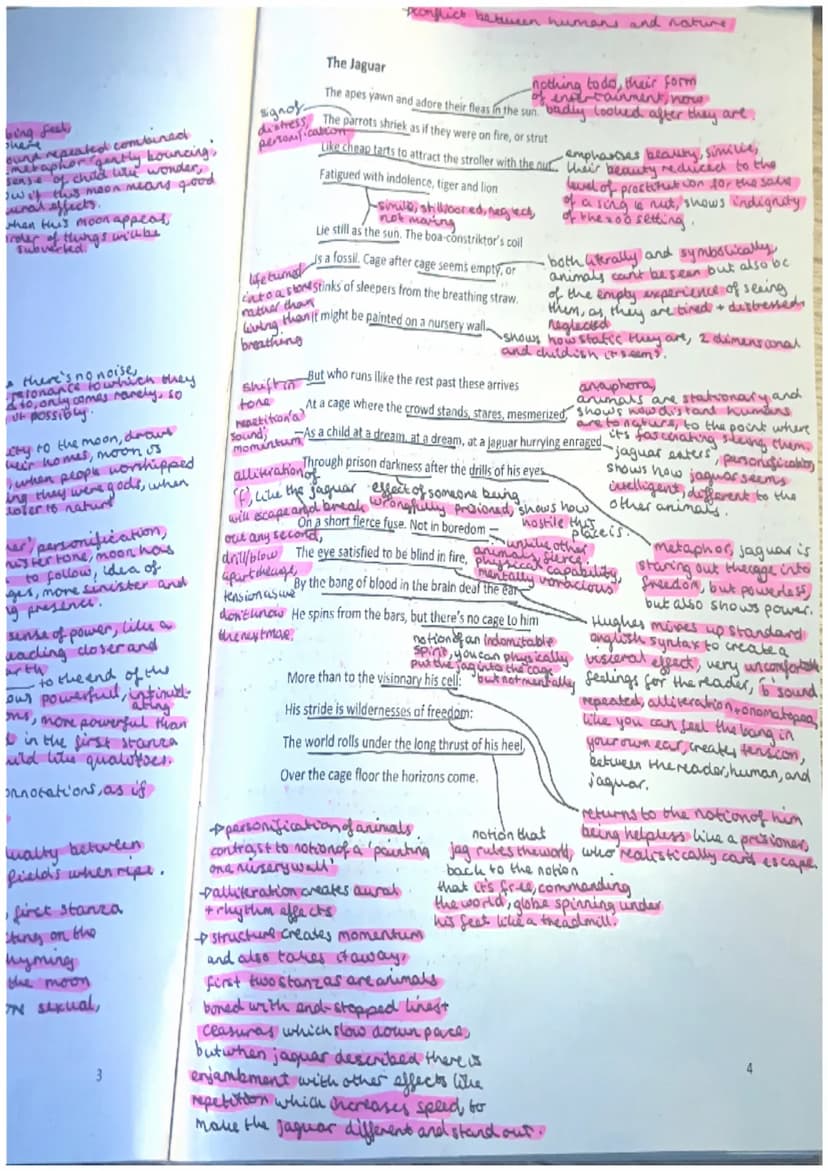 conflict between humans and nature
The Jaguar
The apes yawn and adore their fleas in the sun.
The parrots shriek as if they were on fire, or strut
Like cheap tarts to attract the stroller with the nut.
Fatigued with indolence, tiger and lion
Lie still as the sun. The boa-constriktor's coil
Is a fossil. Cage after cage seems empty, or
Stinks of sleepers from the breathing straw.
It might be painted on a nursery wall.
But who runs llike the rest past these arrives
At a cage where the crowd stands, stares, mesmerized,
As a child at a dream, at a dream, at a jaguar hurrying enraged
Through prison darkness after the drills of his eyes
On a short fierce fuse. Not in boredom –
The eye satisfied to be blind in fire,
By the bang of blood in the brain deaf the ear
He spins from the bars, but there's no cage to him
More than to the visionary his cell:
His stride is wildernesses of freedom:
The world rolls under the long thrust of his heel,
Over the cage floor the horizons come.
nothing to do, their form
of entertainment, now
badly looked after they are
sign of
distress,
personification
emphasises beauty, similie,
their beauty reduced to the
level of prostitution for the sake
of a single nut, shows indignity
of the zoo setting.
simile, still, bored, neglect,
not moving
both literally and symbolically,
animals cant be seen but also be
of the empty experience of seeing
them, as, they are tired + distressed
neglected
life turned
into a stone
rather than
living than
breathing
shows how static they are, 2 dimensional
and childish it seems.
shift in
tone
repetition 'a'
sound,
momentum
anaphora,
animals are stationary and
shows how distant humans
are to nature, to the point where
it's fascinating seeing them.
jaguar enters, personification,
shows how jaguar seems
intelligent, different to the
other animals.
alliteration of
'f', like the jaguar
will escape and break
out any second,
drill/blow
apart the cage,
tension as we
don't know
the next move.
effect of someone being
wrongfully prisioned, shows how
hostile this
place is.
unlike other
animals, fierce,
physical capability,
mentally voracious
metaphor, jaguar is
staring out the cage into
freedom, but powerless,
but also shows power.
Hughes mixes up standard
english syntax to create a
visceral effect, very uncomfortable
feelings for the reader, 'b' sound
repeated, alliteration + onomatopoea,
like you can feel the bang in
your own ear, creates tension,
between the reader, human, and
jaguar.
notion of an indomitable
spirit, you can physically
put the jag into the cage
but not mentally
returns to the notion of him
being helpless like a prisioner,
who realistically cant escape
notion that
jag rules the world,
back to the notion
that it's free, commanding
the world, globe spinning under
his feet like a treadmill.
→ personification of animals
contrast to notion of a 'painting
one nursery wall'
→ alliteration creates aural
+ rhythm effects
→ structure creates momentum
and also takes it away,
first two stanzas are animals
bored with end-stopped lines +
ceasuras which slow down pace,
but when jaguar described there is
enjambment with other effects like
repetition which increases speed, to
make the jaguar different and stand out.
4
being feel
here
ound repeated combined
metaphor, gently bouncing,
sense of child like wonder,
ow if this moon means good
ural effects.
when this moon appeas,
order of things will be
subverted
there's no noise,
resonance to which they
d to, only comes rarely, so
possibly.
to the moon, draws
heir homes, moon is
, when people worshipped
ing they were gods, when
closer to nature
personification,
nister tone, moon has
to follow, idea of
ges, more sinister and
g presence.
sense of power, like a
eading closer and
arth
to the end of the
ous powerful, intimid-
ating
ons, more powerful than
in the first stanza
uild like qualitites.
onnotations, as if
uality between
fields when ripe.
first stanza
cting on the
hyming
the moon
sexual,
3